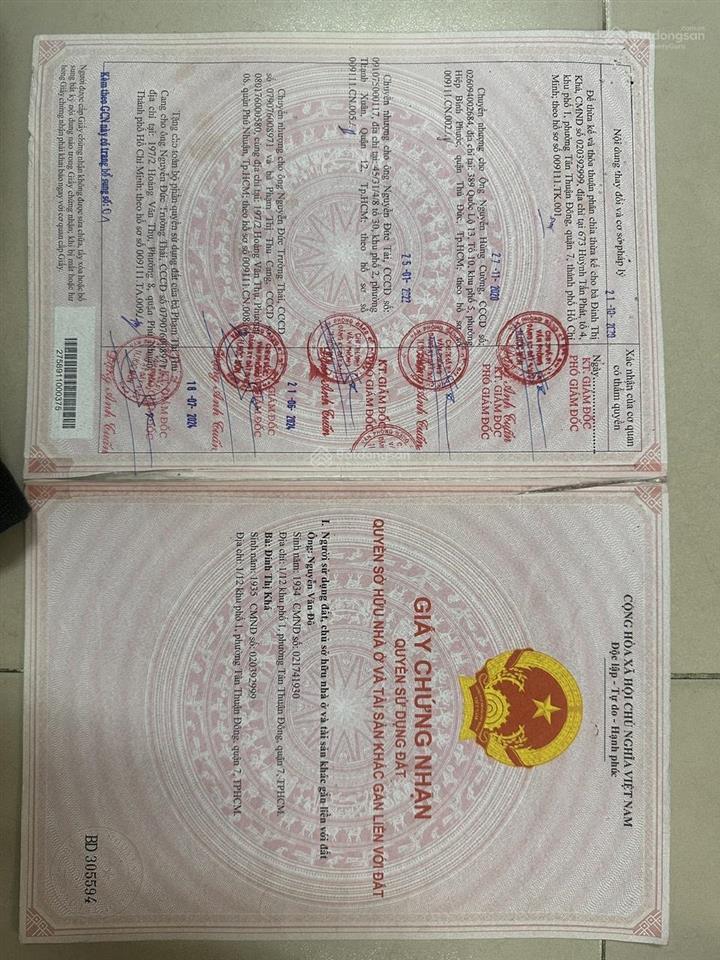 Nội dung thay đổi và cơ sở pháp lý
Xác nhận của cơ quan
có thẩm quyền
21-10-2020
Ngày
Để thừa kế và thỏa thuận phân chia thừa kế cho bà Đinh Thị
Khá, CMND số 020392999, địa chỉ tại 673 Huỳnh Tấn Phát, tổ 4,
khu phố 1, phường Tân Thuận Đông, quận 7, thành phố Hồ Chí
Minh; theo hồ sơ số 009111.TK.001.
KT. GIÁM ĐỐC
PHÓ GIÁM ĐỐC
27-11-2020
Chuyển nhượng cho Ông Nguyễn Hùng Cường, CCCD số:
026094002684, địa chỉ tại: 389 Quốc Lộ 13, Tổ 10, khu phố 5, phường
Hiệp Bình Phước, quận Thủ Đức, Tp.HCM; theo hồ sơ số
009111.CN.002
KT. GIÁM ĐỐC
PHÓ GIÁM ĐỐC
25-01-2022
Chuyển nhượng cho ông Nguyễn Đức Tài, CCCD số:
091075000117, địa chỉ tại: 45/31/4/8 tổ 30, khu phố 2, phường
Thạnh Xuân, Quận 12, Tp.HCM; theo hồ sơ số
009111.CN.005
KT. GIÁM ĐỐC
PHÓ GIÁM ĐỐC
21-06-2024
Chuyển nhượng cho ông Nguyễn Đức Trường Thái, CCCD
số 079076008971 và bà Phạm Thị Thu Cang, CCCD số
080176000580, cùng địa chỉ tại: 197/2 Hoàng Văn Thụ, Phường
08, quận Phú Nhuận, Tp.HCM; theo hồ sơ số 009111.CN.008
GIÁM ĐỐC
18-07-2024
Tặng cho toàn bộ phần quyền sử dụng đất của bà Phạm Thị Thu
Cang cho ông Nguyễn Đức Trường Thái, CCCD số 079076008971
địa chỉ tại: 197/2 Hoàng Văn Thụ, Phường 8, quận Phú Nhuận
Thành phố Hồ Chí Minh; theo hồ sơ số 009111.TA.009
GIÁM ĐỐC
Kèm theo GCN này có trang bổ sung số: 01
Người được cấp Giấy chứng nhận không được sửa chữa, tẩy xóa hoặc bổ
sung bất kỳ nội dung nào trong Giấy chứng nhận; khi bị mất hoặc hư
hỏng Giấy chứng nhận phải khai báo ngay với cơ quan cấp Giấy.
2758911000375
CỘNG HÒA XÃ HỘI CHỦ NGHĨA VIỆT NAM
Độc lập - Tự do - Hạnh phúc
GIẤY CHỨNG NHẬN
QUYỀN SỬ DỤNG ĐẤT
QUYỀN SỞ HỮU NHÀ Ở VÀ TÀI SẢN KHÁC GẮN LIỀN VỚI ĐẤT
I. Người sử dụng đất, chủ sở hữu nhà ở và tài sản khác gắn liền với đất
Ông: Nguyễn Văn Đô
Sinh năm: 1934 CMND số: 021741930
Địa chỉ: 1/12 khu phố 1, phường Tân Thuận Đông, quận 7, TPHCM.
Bà: Đinh Thị Khá
Sinh năm: 1935 CMND số: 020392999
Địa chỉ: 1/12 khu phố 1, phường Tân Thuận Đông, quận 7, TPHCM.
BD 305594
Batdongsan